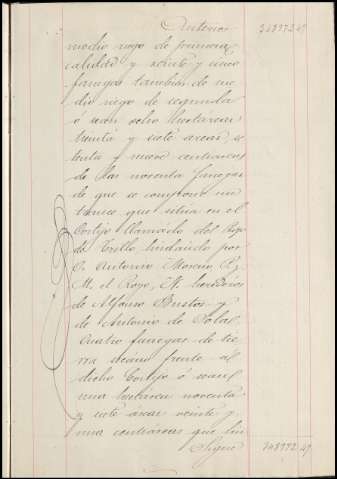 Anterior 348972.49
medio riego de primera
calidad y veinte y una
fanegas tambien de me
dio riego de segunda
ó sean ocho hectareas
treinta y siete areas, se
tenta y nueve centiareas
de las noventa fanegas
de que se compone un
banco que sitúa en el
Cortijo llamado del
de Trillo lindando por
S. Antonio Moreno, P. y
M. el Royo, N. herederos
de Alfonso Bustos y
de Antonio de Sola.
Cuatro fanegas de tie
rra secano frente al
dicho Cortijo ó sean
una hectarea noventa
y siete areas veinte y
una centiareas que lin
Sigue 348972.49